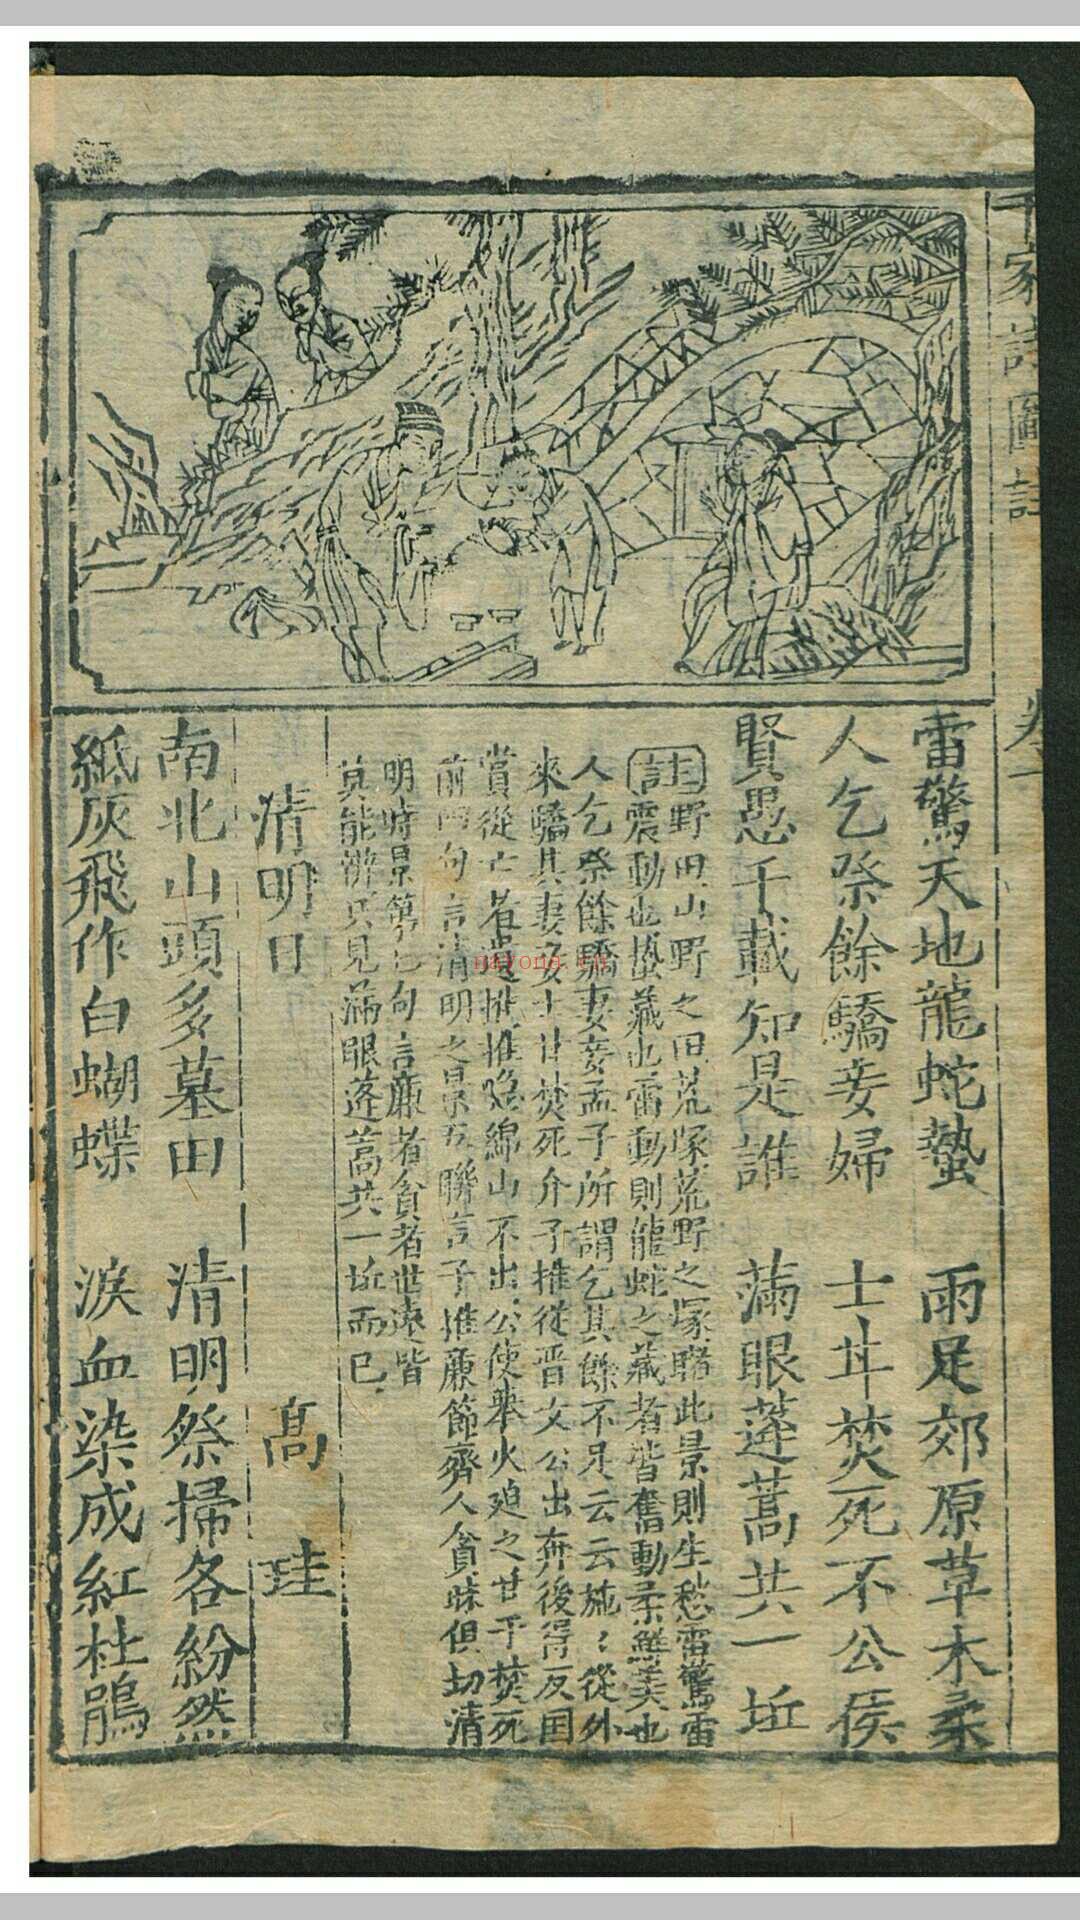 千家詩圖註
卷一
雷驚天地龍蛇蟄　雨足郊原草木柔
人乞祭餘驕妾婦　士甘焚死不公侯
賢愚千載知是誰　滿眼蓬蒿共一坵
註野田山野之田荒塚荒野之塚睹此景則生愁雷驚雷
震動也蟄藏也雷動則龍蛇之藏者皆奮動柔鮮美也
人乞祭餘驕妻妾孟子所謂乞其餘不足云云施〻從外
來驕其妻妾士甘焚死介子推從晋文公出奔後得反国
賞從亡者遺推推隐綿山不出公使舉火廹之甘于焚死
前両句言清明之景五聯言子推亷節齊人貪昧俱切清
明時景第七句言亷者貪者世遠皆
莫能辨只見滿眼蓬蒿共一坵而已
清明日　髙　珪
南北山頭多墓田　清明祭掃各紛然
紙灰飛作白蝴蝶　淚血染成紅杜鵑
nayona.cn